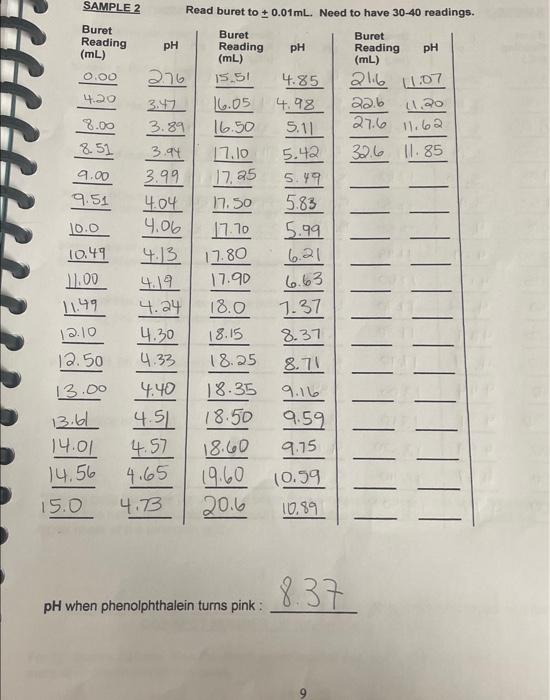 SAMPLE 2 Read buret to ± 0.01mL. Need to have 30-40 readings.
Buret Reading (mL) pH Buret Reading (mL) pH Buret Reading (mL) pH
0.00 2.76 15.51 4.85 21.6 11.07
4.20 3.47 16.05 4.98 22.6 11.20
8.00 3.89 16.50 5.11 27.6 11.62
8.51 3.94 17.10 5.42 32.6 11.85
9.00 3.99 17.25 5.49
9.51 4.04 17.50 5.83
10.0 4.06 17.70 5.99
10.49 4.13 17.80 6.21
11.00 4.19 17.90 6.63
11.49 4.24 18.0 7.37
12.10 4.30 18.15 8.37
12.50 4.33 18.25 8.71
13.00 4.40 18.35 9.16
13.61 4.51 18.50 9.59
14.01 4.57 18.60 9.75
14.56 4.65 19.60 10.59
15.0 4.73 20.6 10.89
pH when phenolphthalein turns pink : 8.37
9